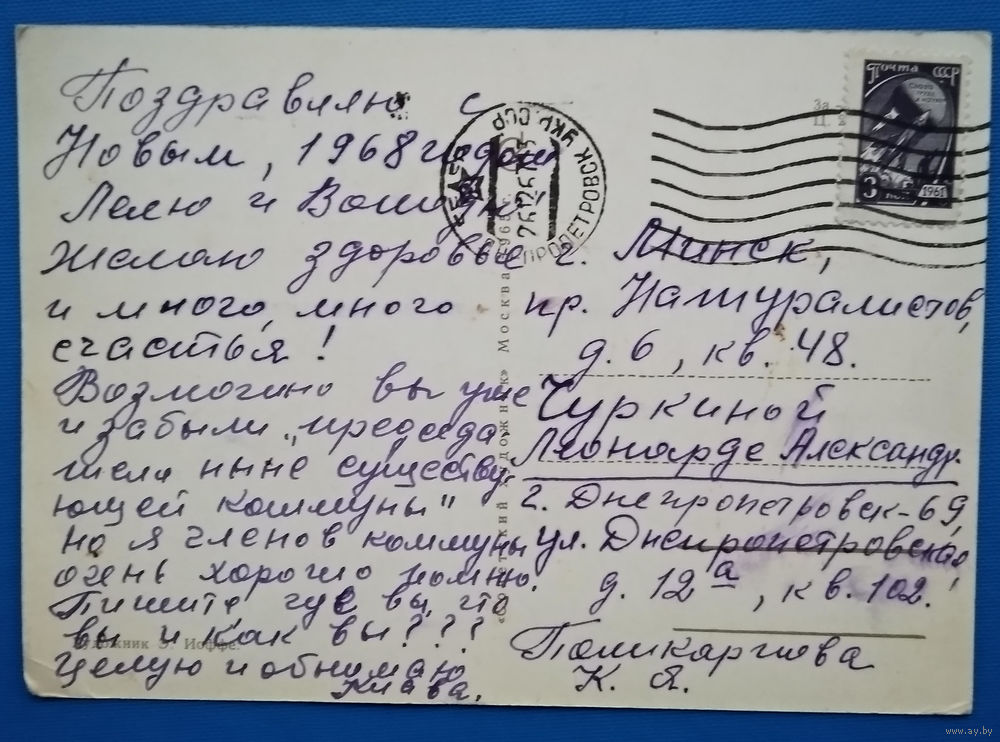 Поздравляю с
Новым, 1968 годом
Лелю и Володю
Желаю здоровье
и много, много
счастья!
Возможно вы уже
и забыли „председа
теля ныне существу-
ющей коммуны"
но я членов коммуны
очень хорошо помню.
Пишите где вы, что
вы и как вы???
Целую и обнимаю
Клава.
Художник Э. Иоффе.
«Советский художник» Москва 1965
ДНЕПРОПЕТРОВСК УКР. ССР
26 12 67
Почта СССР
3 коп
1961
За
г. Минск,
пр. Натуралистов,
д. 6, кв. 48.
Чуркиной
Леонарде Александр.
г. Днепропетровск-69,
ул. Днепропетровская,
д. 12 а, кв. 102.
Поликарпова
К. Я.
www.ay.by